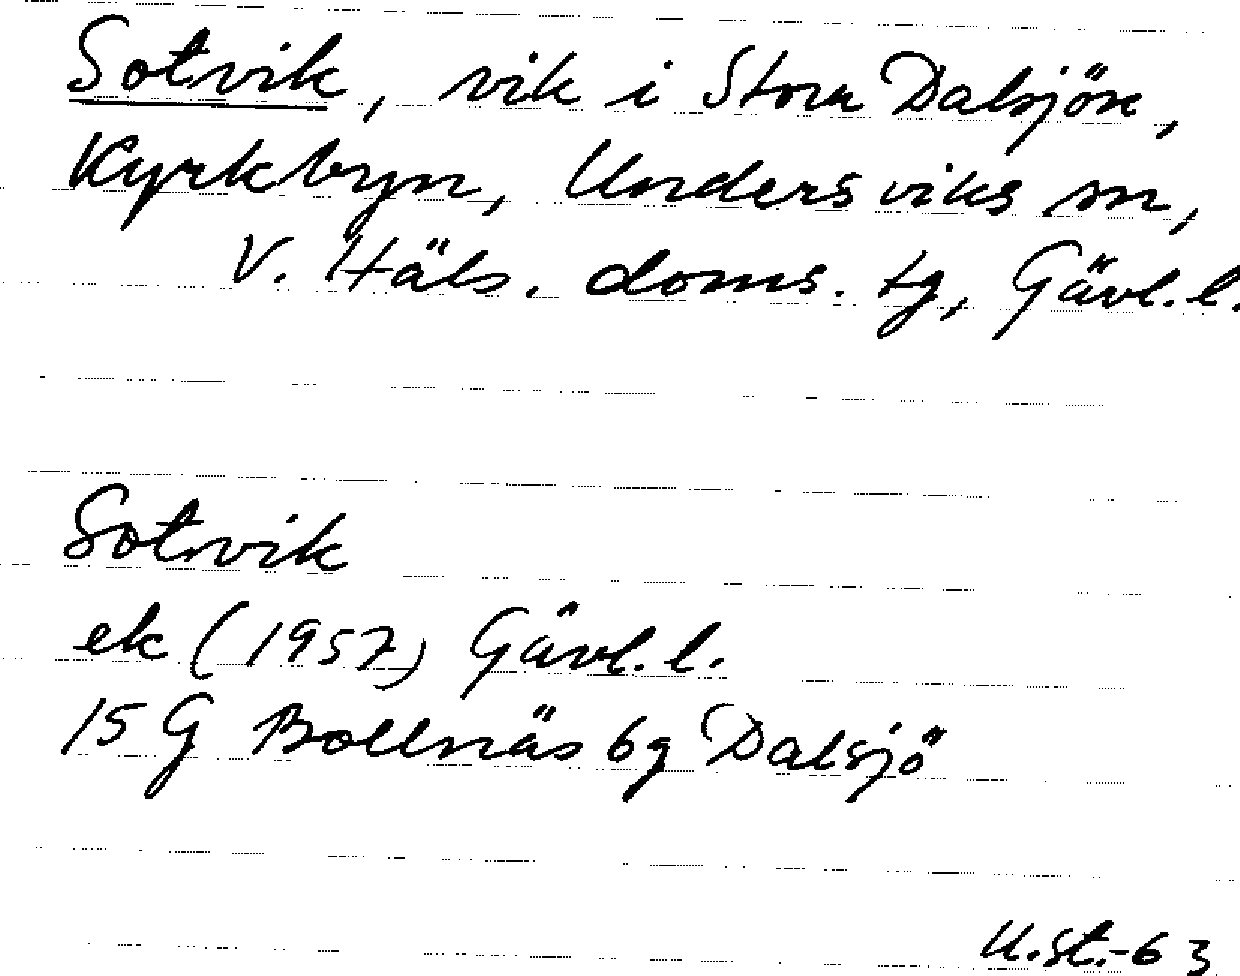 Sotvik, vik i Stora Dalsjön,
Kyrkbyn, Undersviks sn,
V. Häls. doms. tg, Gävl. l.
Sotvik
ek (1957) Gävl. l.
15 G Bollnäs 6g Dalsjö
U.St.-63